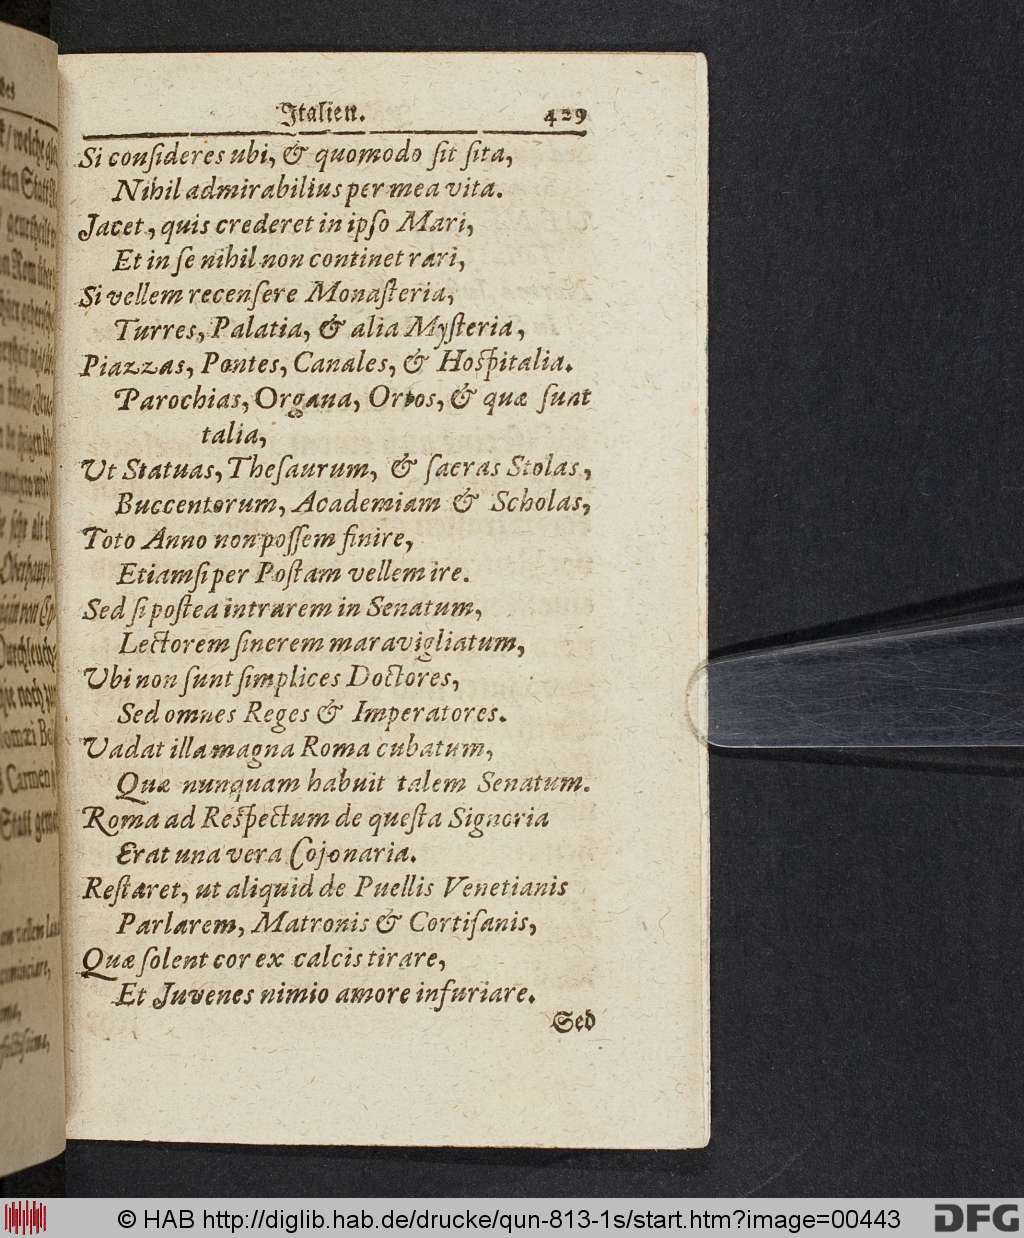 Italien. 429
Si conſideres ubi, & quomodo ſit ſita,
Nihil admirabilius per mea vita.
Jacet, quis crederet in ipſo Mari,
Et in ſe nihil non continet rari,
Si vellem recenſere Monaſteria,
Turres, Palatia, & alia Myſteria,
Piazzas, Pontes, Canales, & Hoſpitalia.
Parochias, Organa, Ortos, & quæ ſunt
talia,
Ut Statuas, Theſaurum, & ſacras Stolas,
Buccentorum, Academiam & Scholas,
Toto Anno non poſſem finire,
Etiamſi per Poſtam vellem ire.
Sed ſi poſtea intrarem in Senatum,
Lectorem ſinerem maravigliatum,
Ubi non ſunt ſimplices Doctores,
Sed omnes Reges & Imperatores.
Vadat illa magna Roma cubatum,
Quæ nunquam habuit talem Senatum.
Roma ad Reſpectum de queſta Signoria
Erat una vera Cojonaria.
Reſtaret, ut aliquid de Puellis Venetianis
Parlarem, Matronis & Cortiſanis,
Quæ ſolent cor ex calcis tirare,
Et Juvenes nimio amore infuriare.
Sed
© HAB http://diglib.hab.de/drucke/qun-813-1s/start.htm?image=00443
DFG